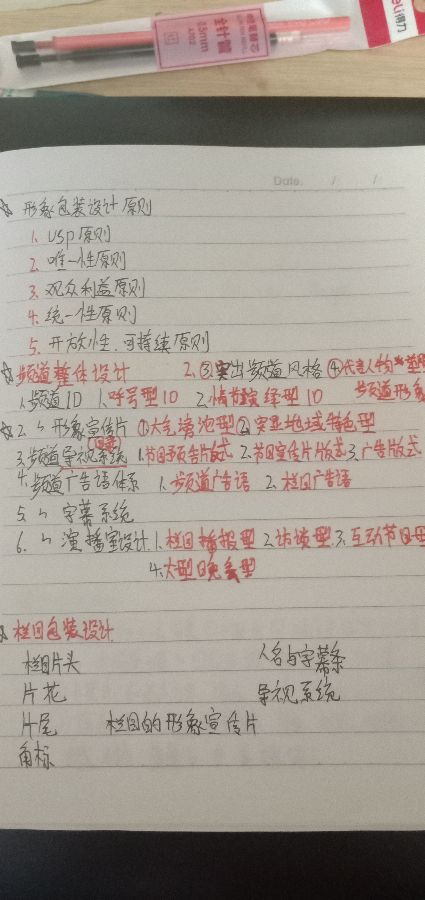 deli得力
针管
0.5mm
Date. / /
☆ 形象包装设计原则
1. USP原则
2. 唯一性原则
3. 观众利益原则
4. 统一性原则
5. 开放性.可持续原则
☆频道整体设计 2. ③突出频道风格 ④代言人物 塑
1.频道ID 1.呼号型ID 2.情节演绎型ID 频道形象
☆2. 〃 形象宣传片 ①大气滂沱型 ②突显地域特色型
3.频道导视系统 1.节目预告片版式 2.节目宣传片版式 3.广告版式
4.频道广告语体系 1.频道广告语 2.栏目广告语
5. 〃 字幕系统
6. 〃 演播室设计 1.栏目播报型 2.访谈型 3.互动节目型
4.大型晚会型
☆栏目包装设计
栏目片头 人名与字幕条
片花 导视系统
片尾 栏目的形象宣传片
角标